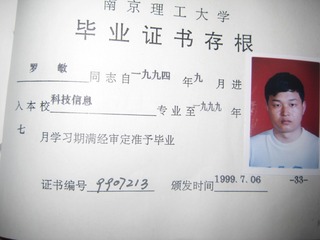 南京理工大学
毕业证书存根
罗敏同志自一九九四年九月进
入本校科技信息专业至一九九九年
七月学习期满经审定准予毕业
证书编号 9907213 颁发时间 1999.7.06 -33-